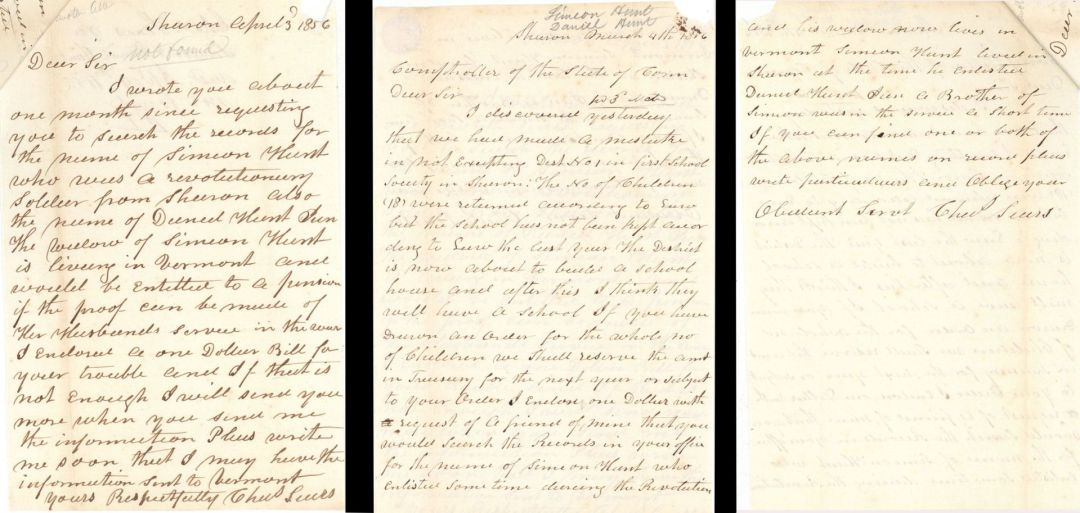 Sharon April 3d 1856
not found
Dear Sir
I wrote you about
one month since requesting
you to search the records for
the name of Simeon Hunt
who was a revolutionary
Soldier from Sharon also
the name of Daniel Hunt Jun
The widow of Simeon Hunt
is living in Vermont and
would be Entitled to a pension
if the proof can be made of
Her Husbands Service in the war
I Enclosed a one Dollar Bill for
your trouble and If that is
not Enough I will send you
more when you send me
the information Pleas write
me soon that I may have the
information sent to Vermont
yours Respectfully Chas Sears
Simeon Hunt
Daniel Hunt
Sharon March 4th 1856
Comptroller of the State of Conn
Dear Sir
I discovered yesterday
that we had made a mistake
in not Excepting Dest No 1 in first School
Society in Sharon: The No of Children
(18) were returned according to Law
but the School has not been kept accor
ding to Law the last year The District
is now about to build a school
house and after this I think they
will have a School If you have
Drawn an order for the whole no
of Children we shall reserve the amt
in Treasury for the next year or subject
to your Order I Enclose one Dollar with
request of a friend of mine that you
would Search the Records in your office
for the name of Simeon Hunt who
Enlisted Sometime during the Revolution
and his widow now lives in
Vermont Simeon Hunt lived in
Sharon at the time he Enlisted
Daniel Hunt Jun a Brother of
Simeon was in the service a short time
If you can find one or both of
the above names on record pleas
write particulars and Oblige your
Obedient Servt Chas Sears
Dear